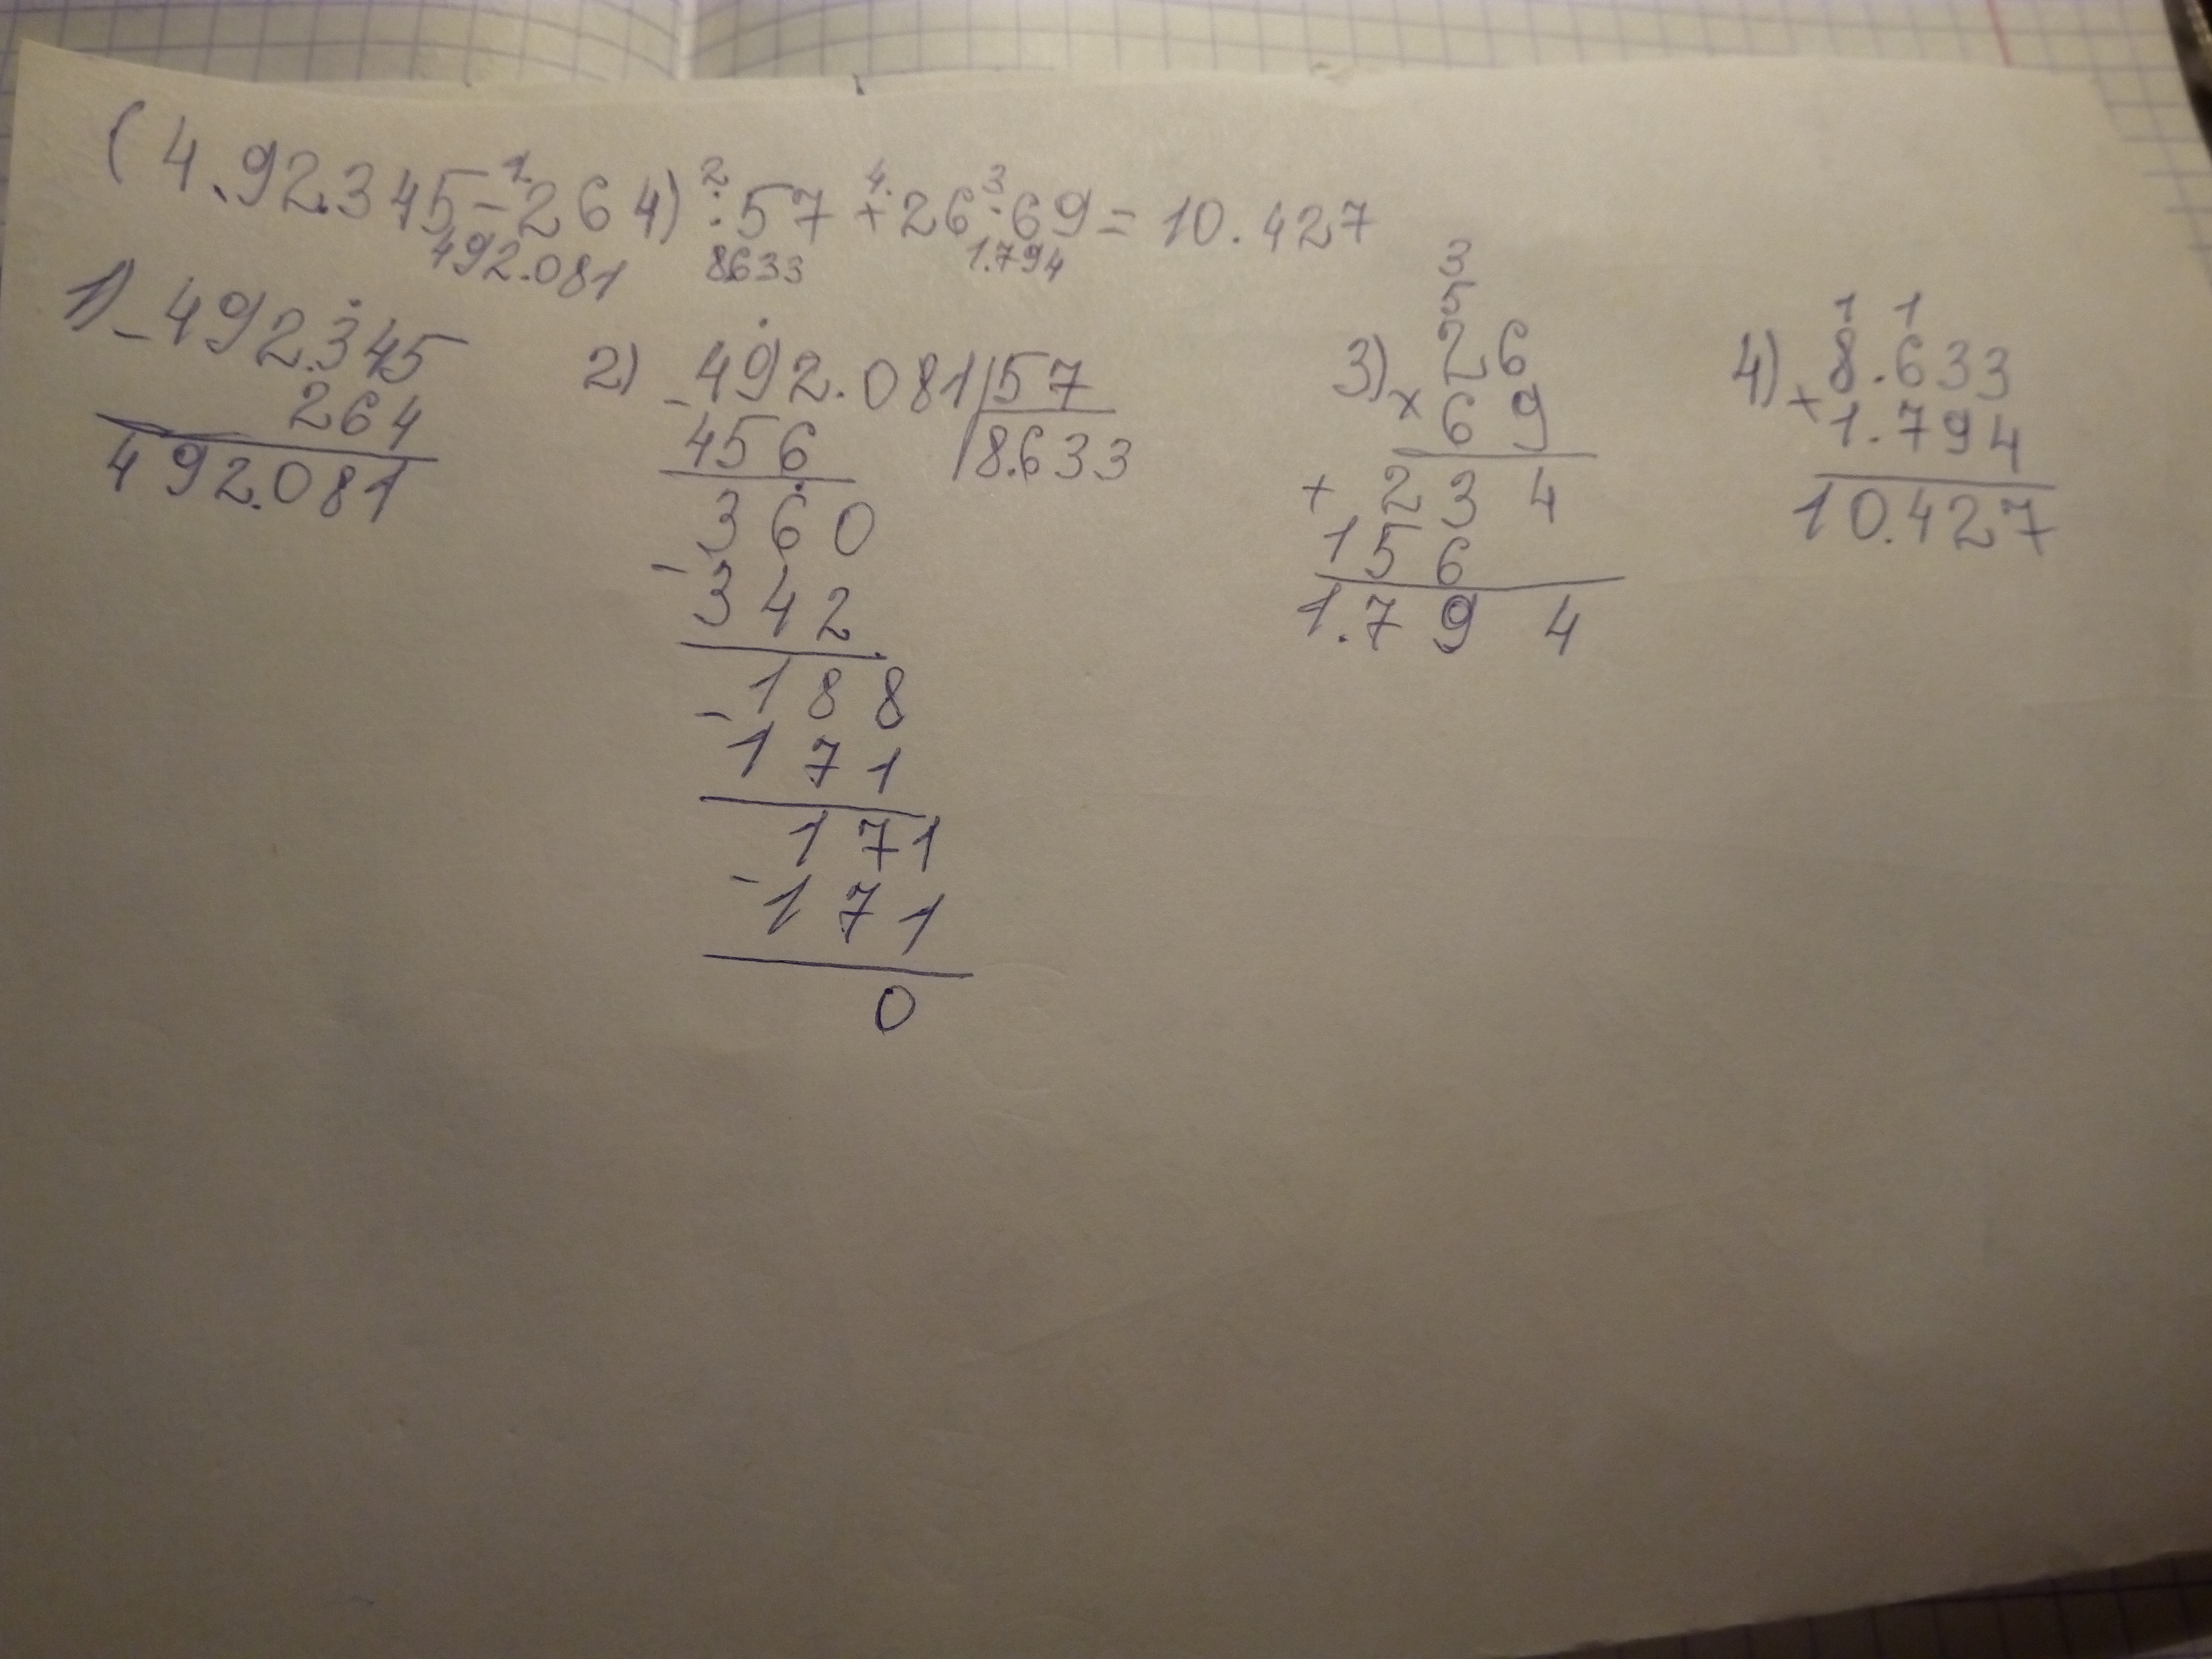 (4.92.345-264):57+26·69=10.427
1. 2 4. 3
492.081 8633 1.794
1) -492.345
264
492.081
2) -492.081|57
456 |8.633
360
-342
188
-171
171
-171
0
3
5
3) 26
×69
+234
156
1.794
1 1
4) 8.633
+1.794
10.427